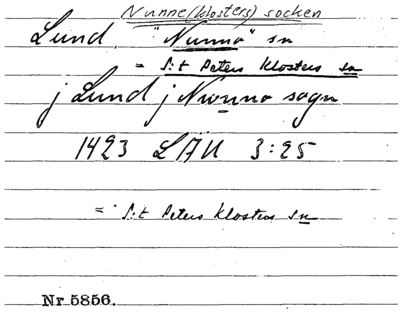 Nunne(klosters) socken
Lund, "Nunna" sn
= S:t Peters Klosters sn
j Lund j Nwnna sogn
1423 LÄU 3:25
= S:t Peters Klosters sn
Nr 5856.